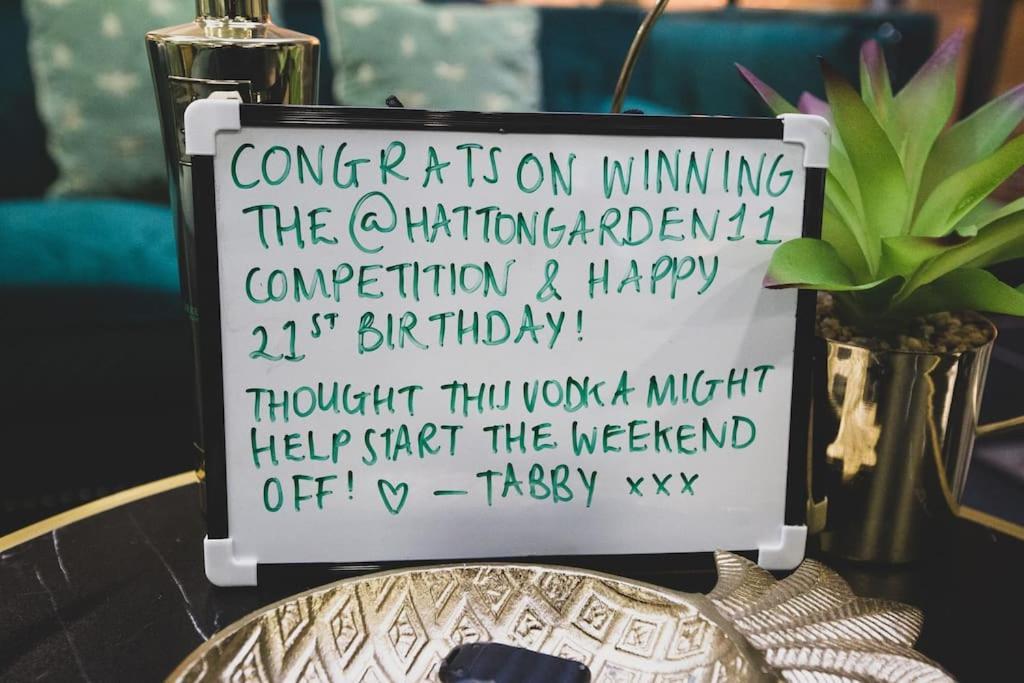 CONGRATS ON WINNING
THE @HATTONGARDEN11
COMPETITION & HAPPY
21ST BIRTHDAY!
THOUGHT THIS VODKA MIGHT
HELP START THE WEEKEND
OFF! ♡ – TABBY xxx